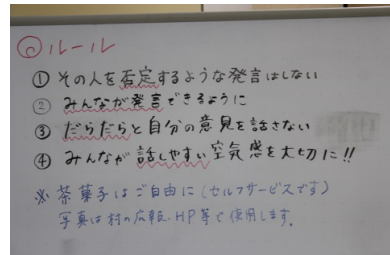 ◎ルール
① その人を否定するような発言はしない
② みんなが発言できるように
③ だらだらと自分の意見を話さない
④ みんなが話しやすい空気感を大切に!!
※ 茶菓子はご自由に(セルフサービスです)
写真は村の広報、HP等で使用します。